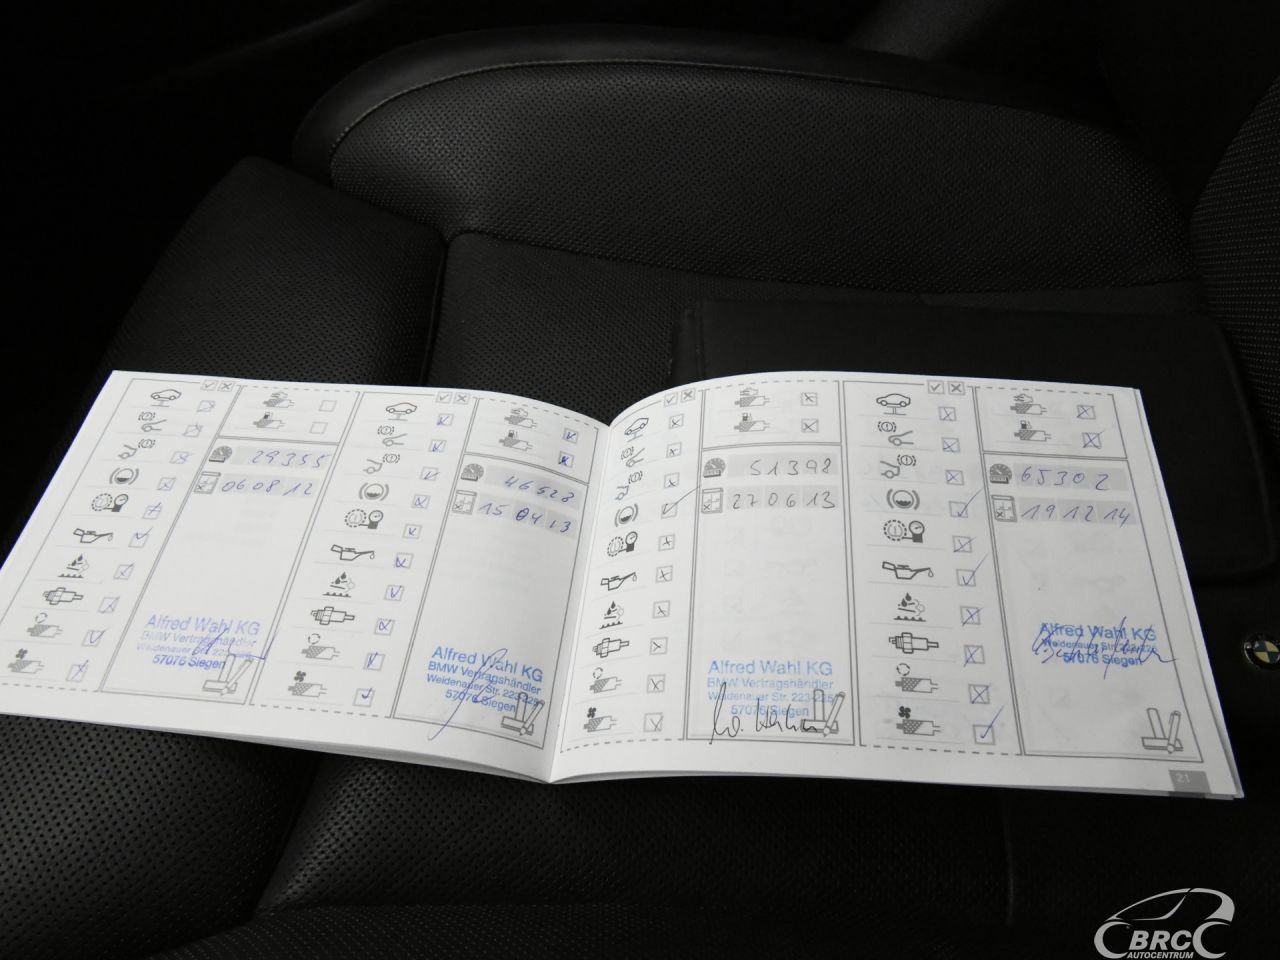 29355
06 08 12
Alfred Wahl KG
BMW Vertragshändler
57076 Siegen
46528
15 04 13
Alfred Wahl KG
BMW Vertragshändler
Weidenauer Str. 223-225
57076 Siegen
51398
27 06 13
Alfred Wahl KG
BMW Vertragshändler
Weidenauer Str. 223-225
57076 Siegen
65302
19 12 14
Alfred Wahl KG
Weidenauer Str. 223-225
57076 Siegen
21
BRC
AUTOCENTRUM